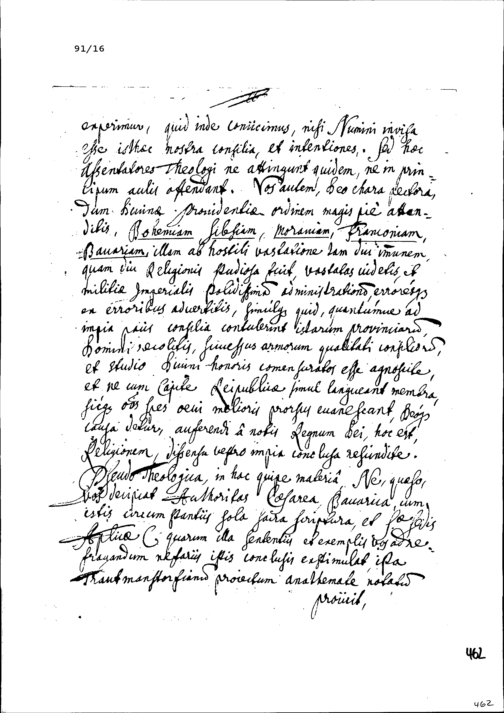 91/16
experimur, quid inde coniicimus, nisi Numini invisa
esse isthæc nostra consilia, et intentiones. Sed hoc
Assentatores Theologi ne attingunt quidem, ne in prin-
cipum aulis offendant. Vos autem, Deo chara pectora,
Dum Divinæ providentiæ ordinem magis piè atten-
ditis, Bohemiam Silesiam, Moraviam, Franconiam,
Bavariam, illam ab hostili vastatione tam diu immunem,
quam diu Religionis studiosa fuit, vastatas videtis, et
militiæ Imperialis administrationis errores
ex erroribus advertitis, simulque quid, quantumve ad
impia pacis consilia contulerint istarum provinciarum
Domini recolitis, successus armorum qualitati consiliorum,
et studio Divini honoris commensuratos esse agnoscite,
et ne cum Capite Reipublicæ simul langueant membra,
sicque oīs spes ævi melioris prorsus evanescant, Deoque
causa detur, auferendi à nobis Regnum Dei, hoc est,
Religionem, dispensa vestro impia conclusa refundite.
Pseudo Theologica, in hac quippe materiâ. Ne, quæso,
vos decipiat Authoritas Cæsarea, Bavarica, cum
istis circumstantiis sola sacra scriptura, et Sedis
Aplicæ (quarum illa sententiis et exemplis vos ad re-
fragandum nefariis istis conclusis exstimulat ista
Trautmanstorfianum provectum anathemate notatum
proiicit,
462
462